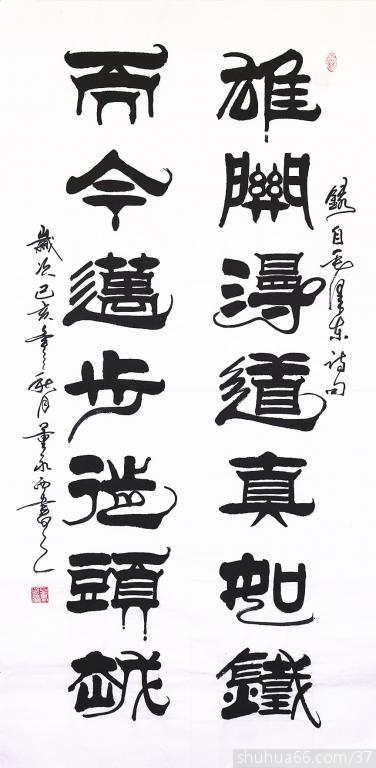 錄自毛澤東詩句
雄關漫道真如鐵
而今邁步從頭越
歲次己亥年之秋月董永書之
shuhua66.com/37